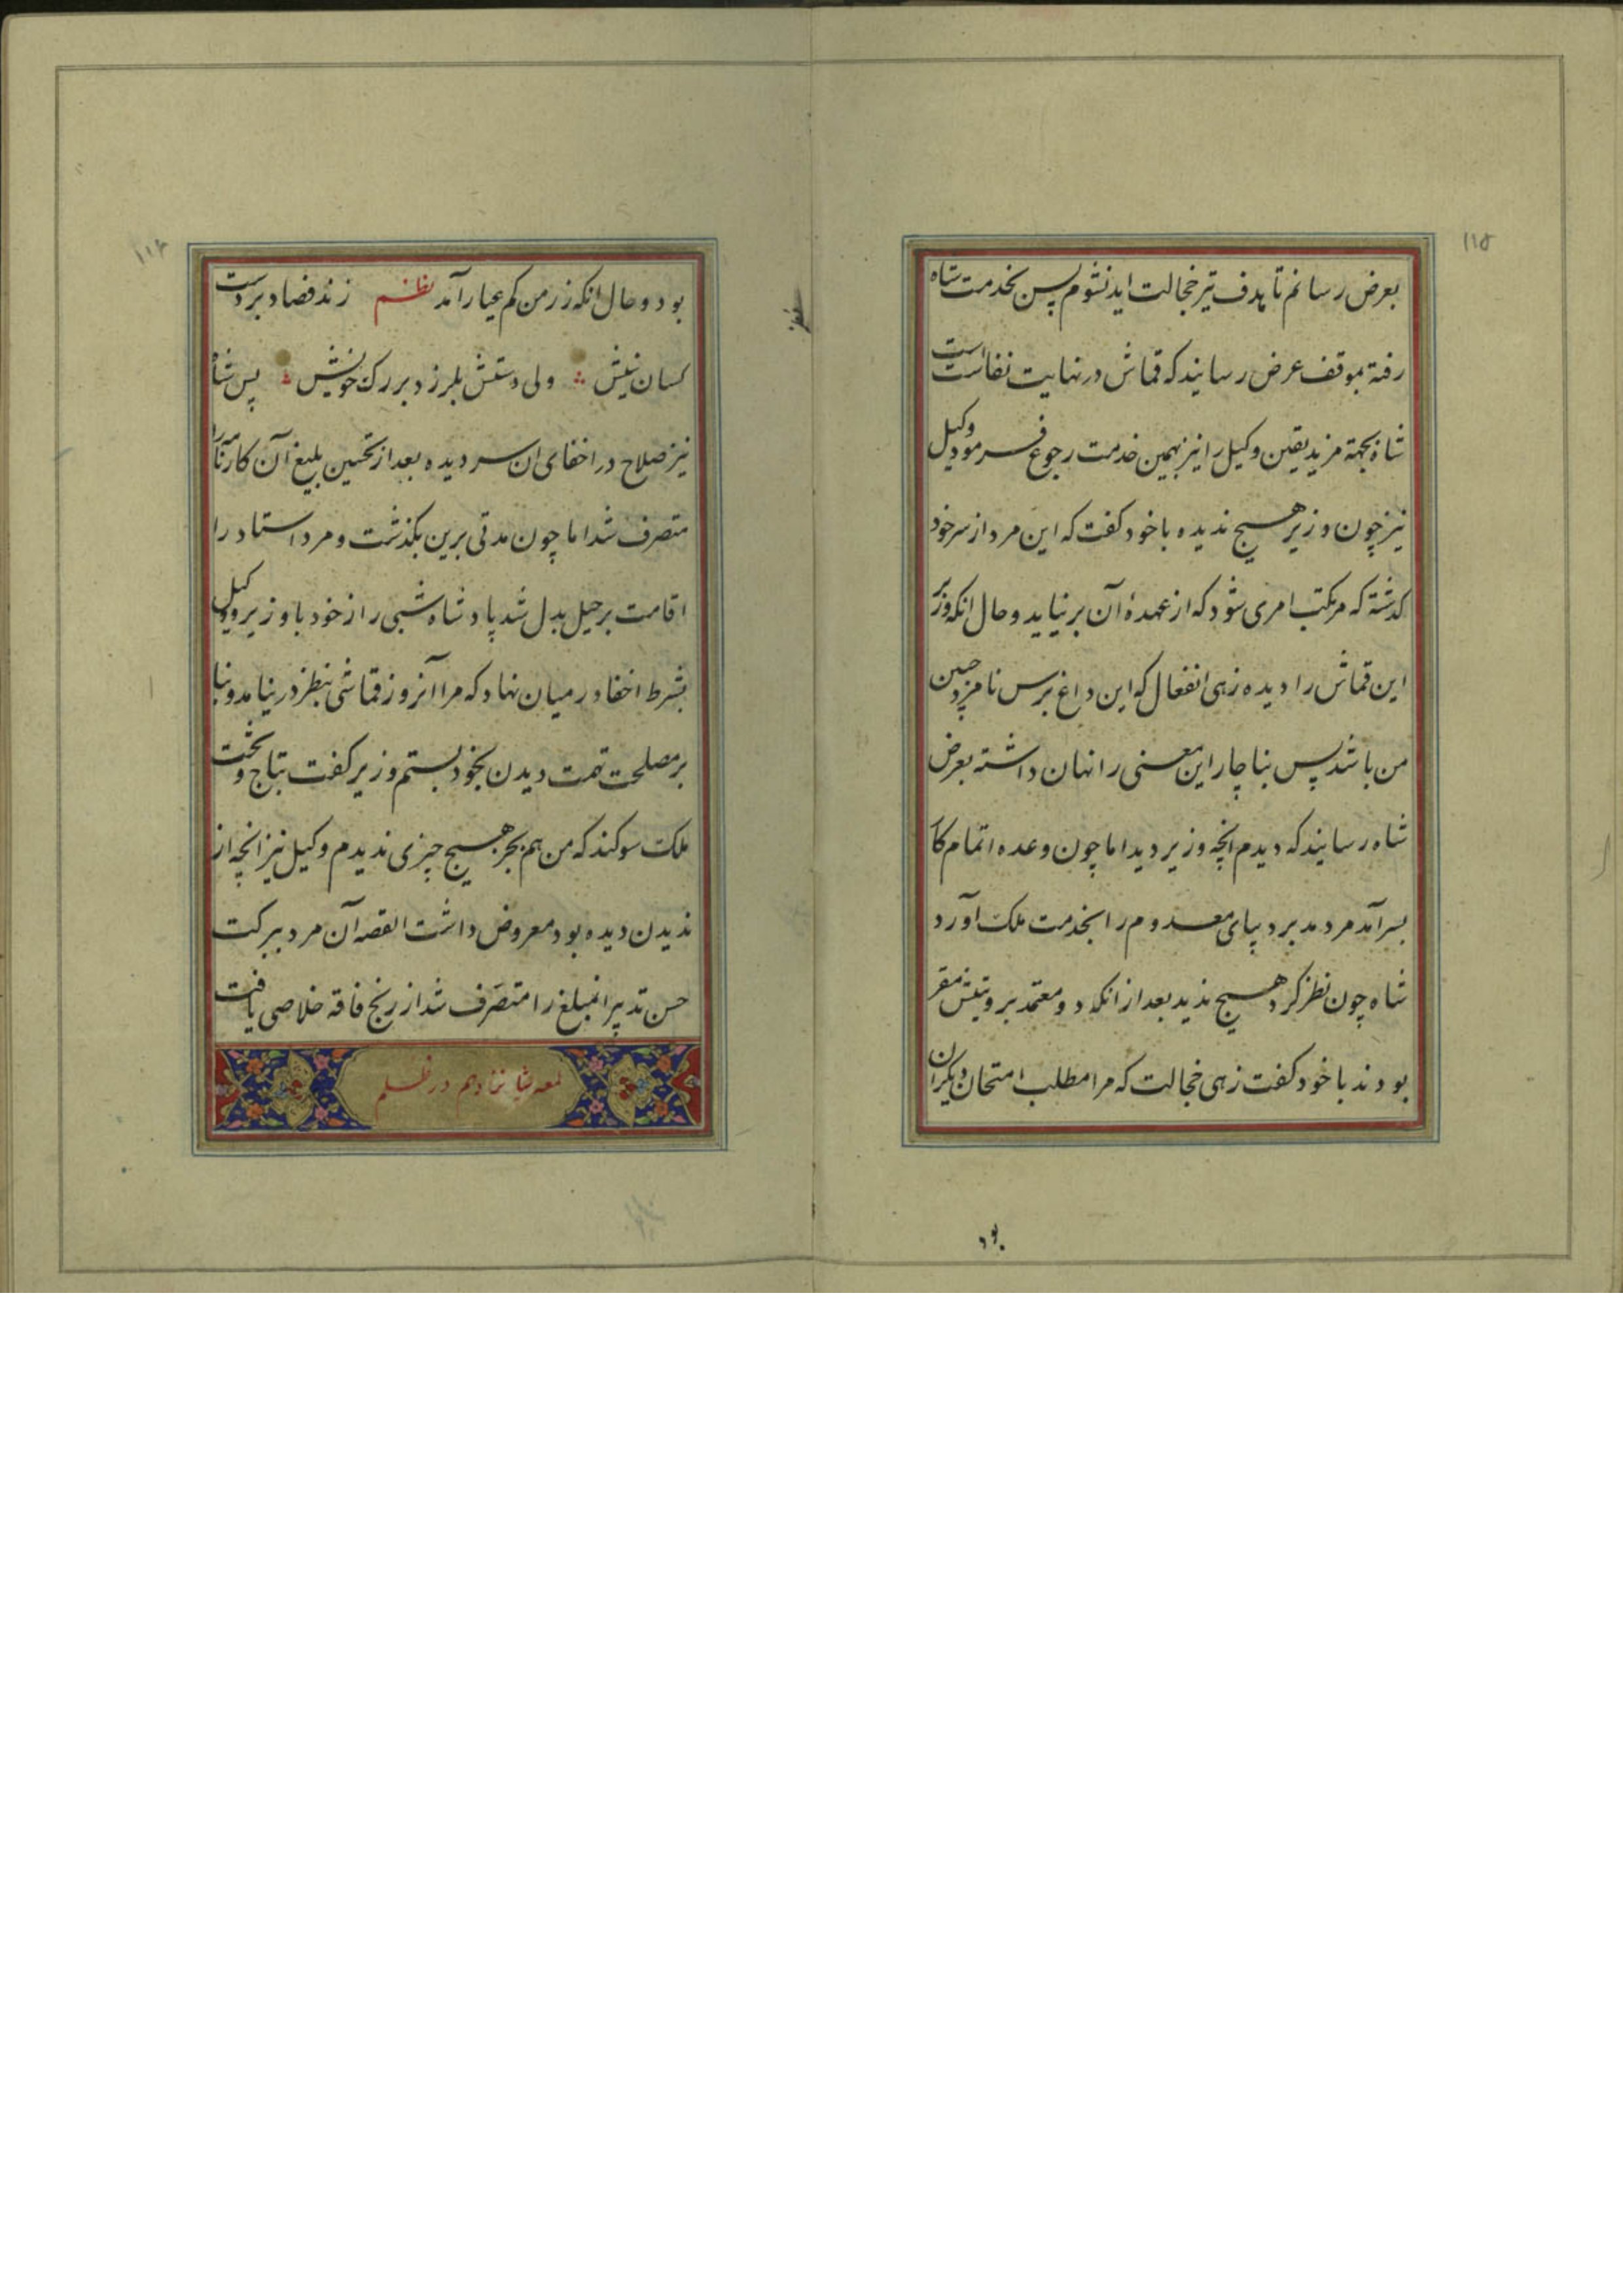 ۱۱۵
بعرض رسانم تا هدف تیر خجالت ابد نشوم پس بخدمت شاه
رفته بموقف عرض رسانید که قماش در نهایت نفاست است
شاه بجهة مزید یقین وکیل را نیز بهمین خدمت رجوع فرمود وکیل
نیز چون وزیر هیچ ندیده با خود کفت که این مرد از سر خود
کذشته که مرتکب امری شود که از عهدهٔ آن بر نیاید و حال انکه وزیر
این قماش را دیده زهی انفعال که این داغ برس نامزد جبین
من باشد پس بناچار این معنی را نهان داشته بعرض
شاه رسانید که دیدم انچه وزیر دید اما چون وعده اتمام کار
بسر آمد مرد مدبر دیبای معدوم را بخدمت ملک آورد
شاه چون نظر کرد هیچ ندید بعد از انکه دو معتمد برویتش مقر
بودند با خود کفت زهی خجالت که مرا مطلب امتحان دیکران
بود
۱۱۶
بود و حال انکه زر من کم عیار آمد نظم زند فصاد بر دست
کسان نیش ولی دستش بلرزد بر رک خویش پس شاه
نیز صلاح در اخفای ان سر دیده بعد از تحسین بلیغ آن کارنامه را
متصرف شد اما چون مدتی برین بکذشت و مرد استاد را
اقامت برحیل بدل شد پادشاه شبی راز خود با وزیر و وکیل
بشرط اخفا در میان نهاد که مرا آنروز قماشی بنظر در نیامد و بنا
بر مصلحت تهمت دیدن بخود بستم وزیر کفت بتاج و تخت
ملک سوکند که من هم بجز هیچ چیزی ندیدم وکیل نیز انچه از
ندیدن دیده بود معروض داشت القصه آن مرد ببرکت
حسن تدبیر انمبلغ را متصرف شد از رنج فاقه خلاصی یافت
لمعه شانزدهم در ظلم